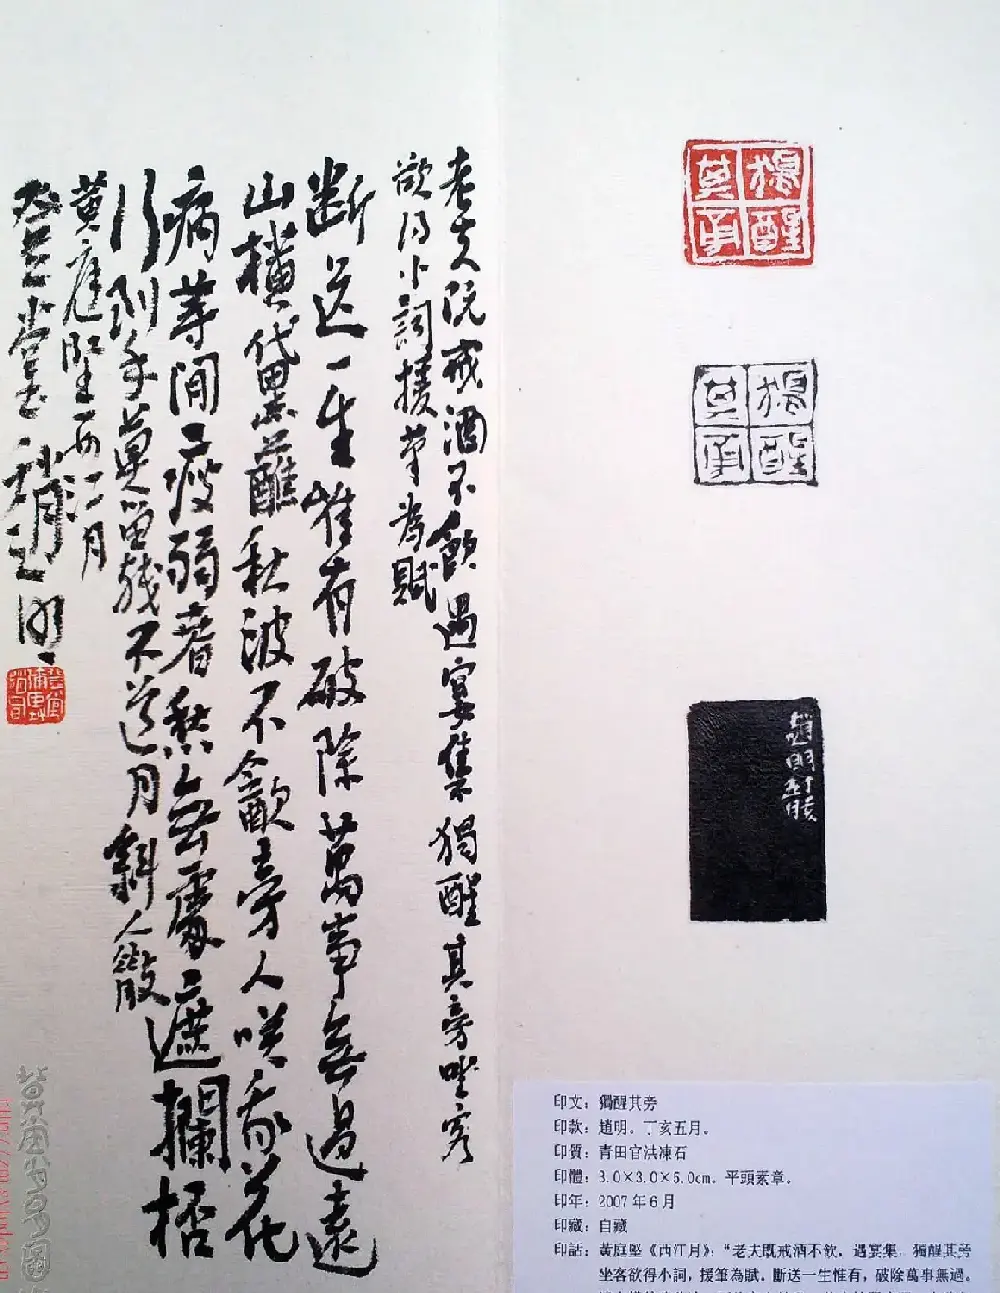 老夫既戒酒不飲遇宴集獨醒其旁坐客
欲得小詞援筆為賦
斷送一生惟有破除萬事無過遠
山橫黛蘸秋波不飲旁人咲我花
病等閒瘦弱春愁無處遮攔杯
行到手莫留殘不道月斜人散
黃庭堅西江月
趙明
獨醒其旁
獨醒其旁
趙明
印文：獨醒其旁
印款：趙明。丁亥五月。
印質：青田官法凍石
印體：3.0×3.0×5.0cm。平頭素章。
印年：2007年6月
印藏：自藏
印話：黃庭堅《西江月》：“老夫既戒酒不飲，遇宴集，獨醒其旁
坐客欲得小詞，援筆為賦。斷送一生惟有，破除萬事無過。